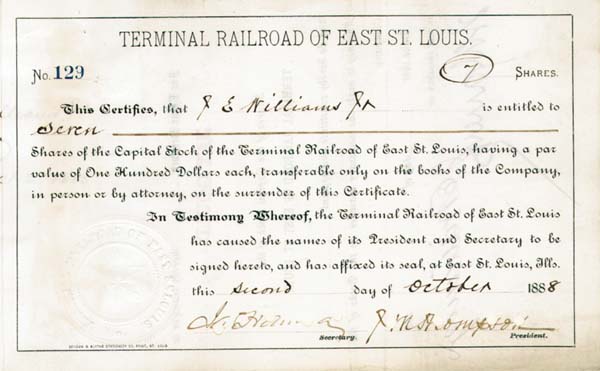 TERMINAL RAILROAD OF EAST ST. LOUIS.
No. 129 7 SHARES.
This Certifies, that J E Williams Jr is entitled to
Seven
Shares of the Capital Stock of the Terminal Railroad of East St. Louis, having a par
value of One Hundred Dollars each, transferable only on the books of the Company,
in person or by attorney, on the surrender of this Certificate.
In Testimony Whereof, the Terminal Railroad of East St. Louis
has caused the names of its President and Secretary to be
signed hereto, and has affixed its seal, at East St. Louis, Ills.
this Second day of October 1888
Secretary. President.